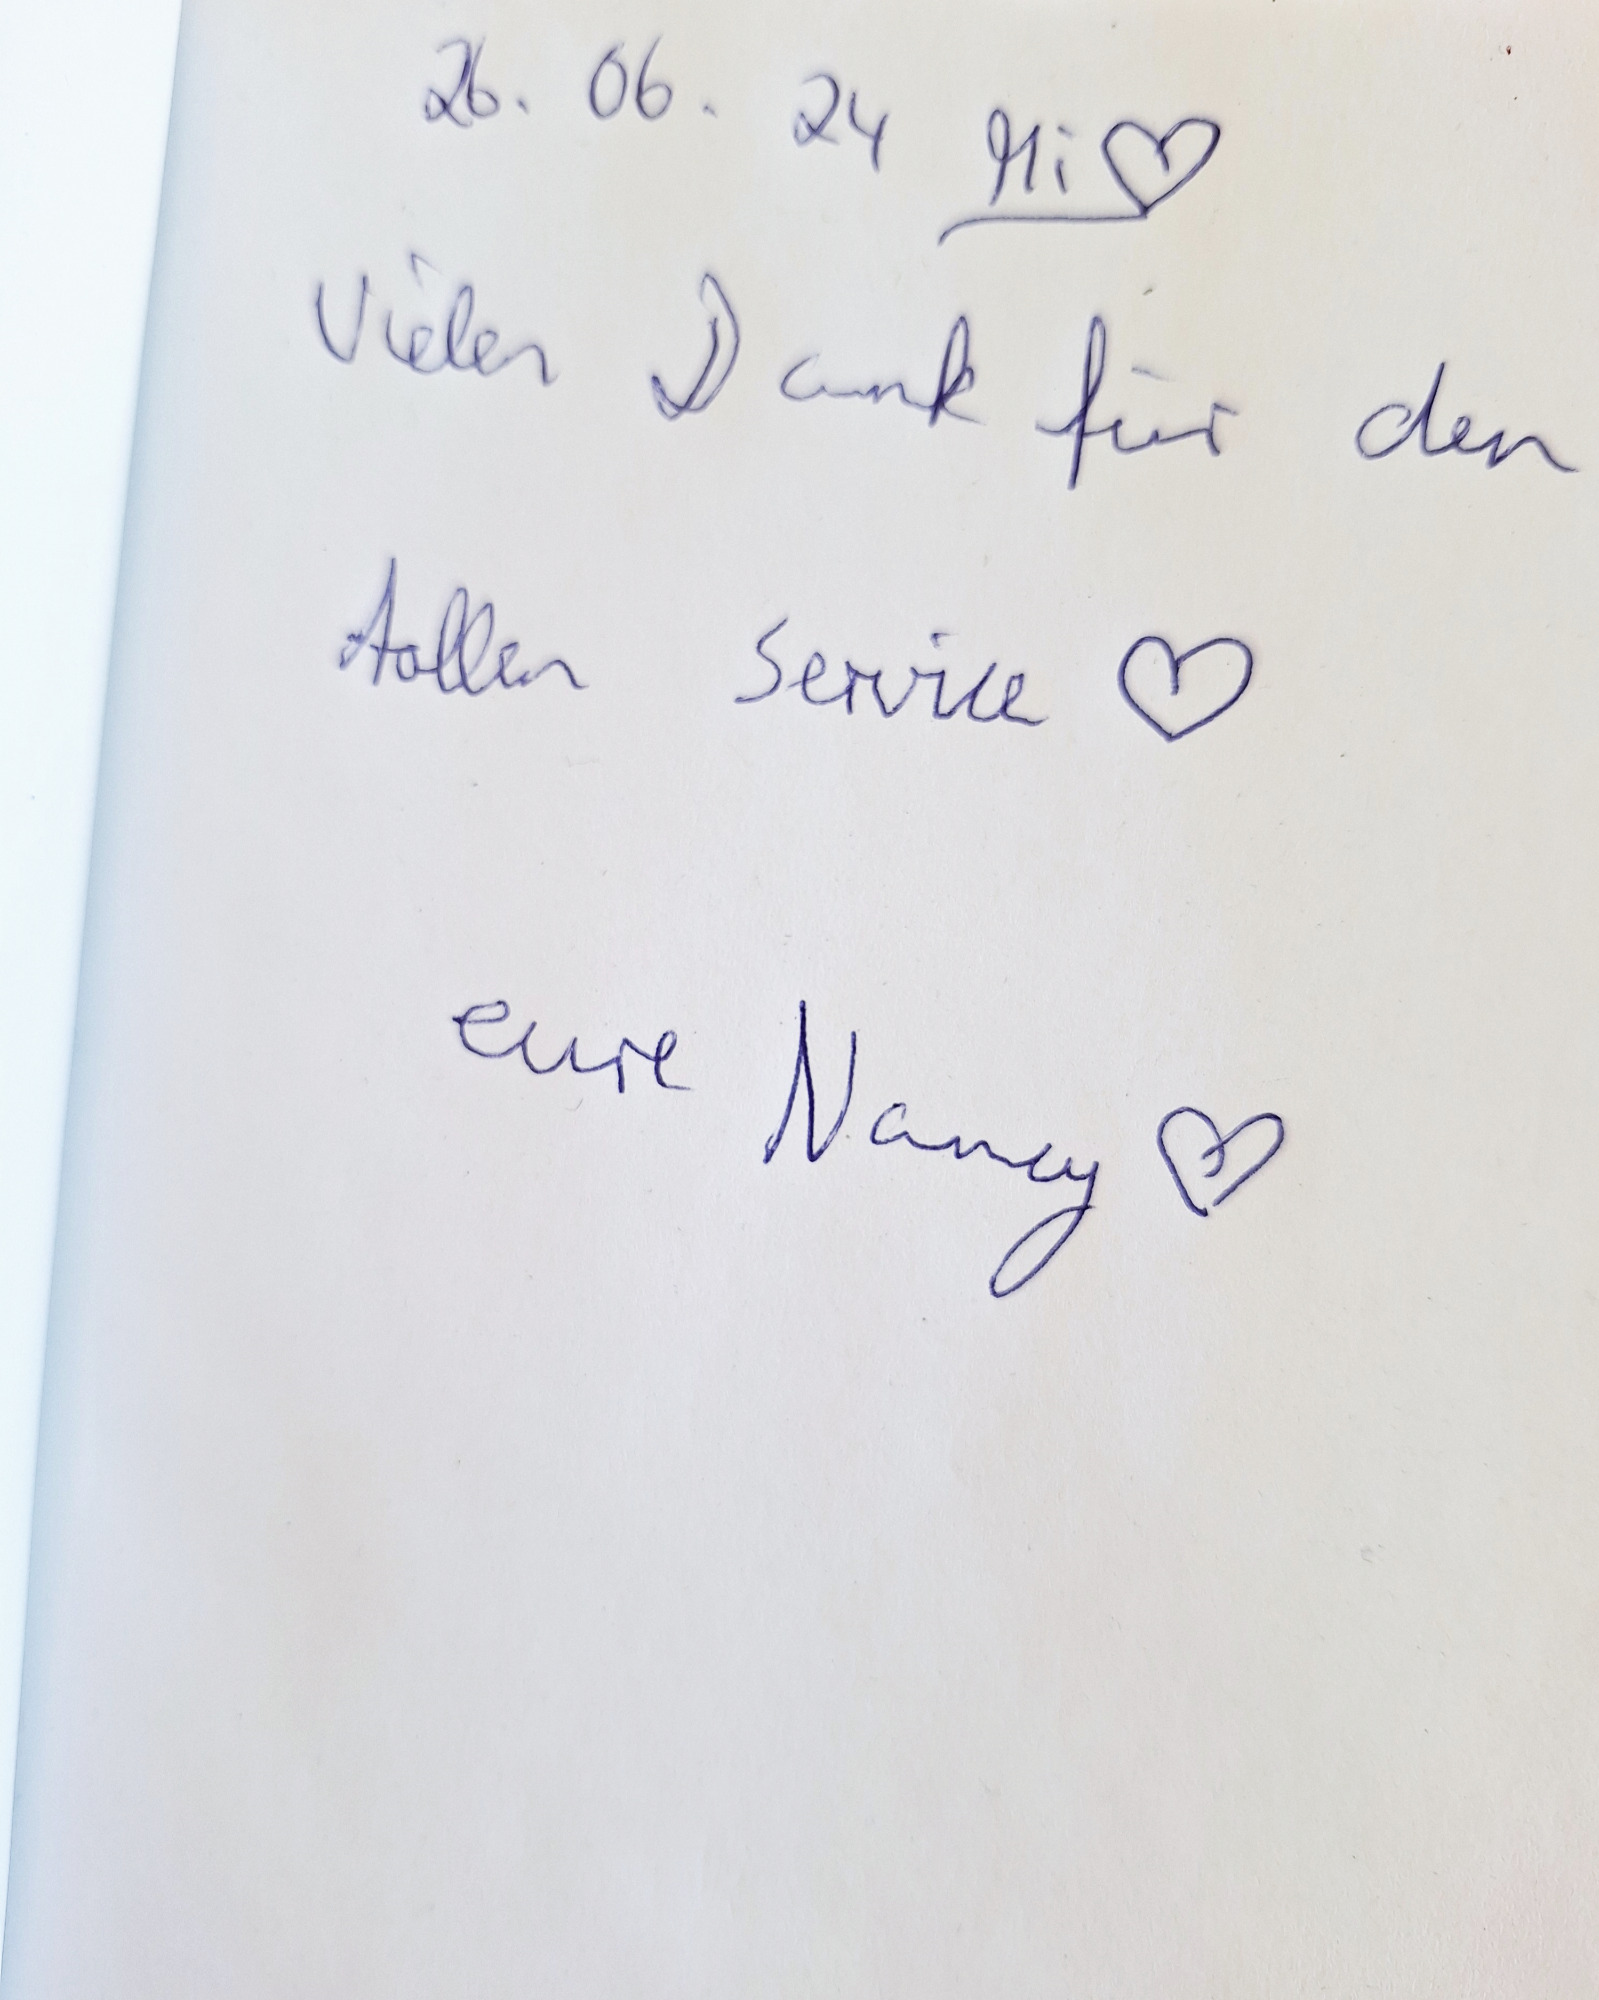 26. 06. 24 Mi ♡
Vielen Dank für den
tollen Service ♡
eure Nancy ♡